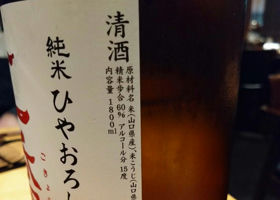 清酒
原材料名 米(山口県産)、米こうじ(山口県
精米歩合60% アルコール分 15度
内容量 1800ml
純米 ひやおろし